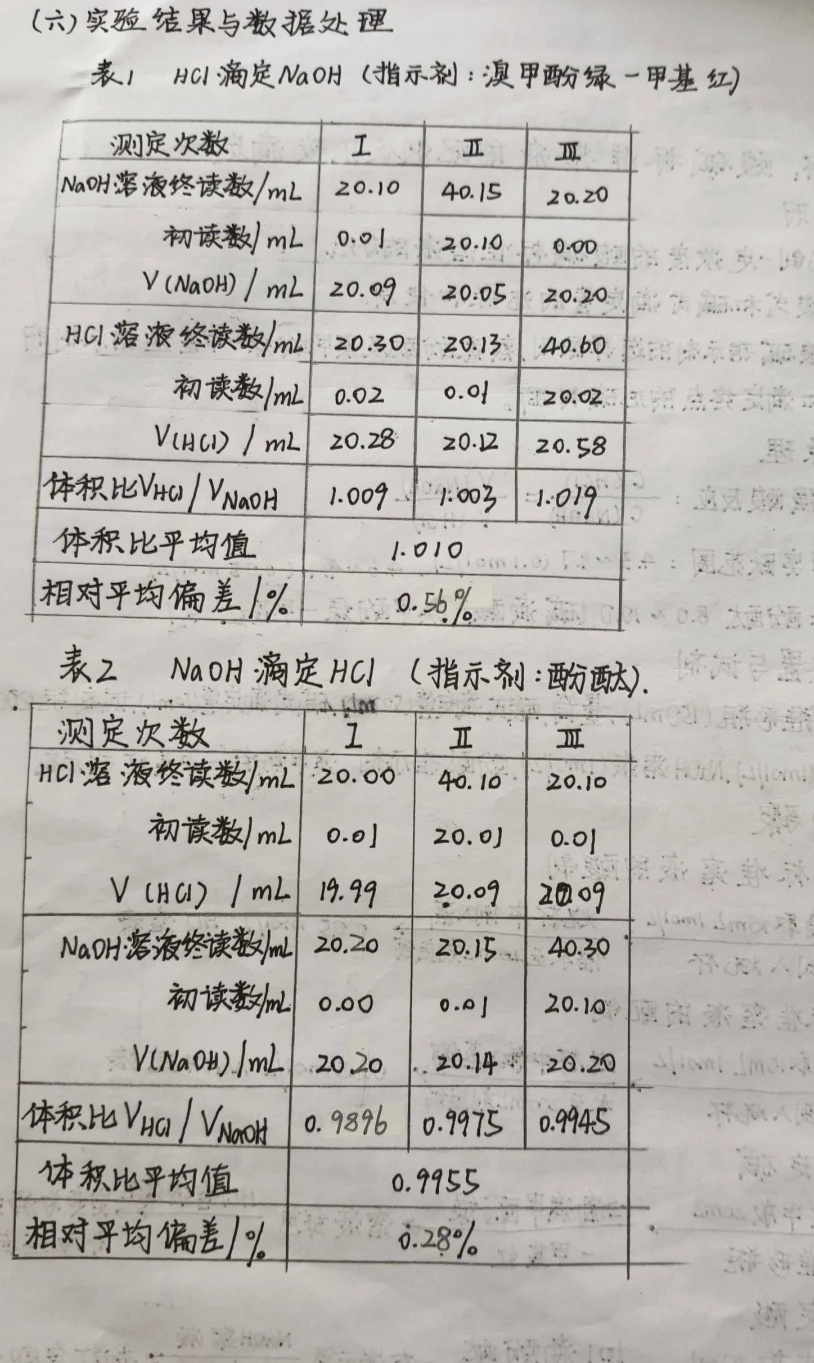 (六)实验结果与数据处理
表1 HCl滴定NaOH (指示剂:溴甲酚绿-甲基红)
测定次数 I II III
NaOH溶液终读数/mL 20.10 40.15 20.20
初读数/mL 0.01 20.10 0.00
V(NaOH)/mL 20.09 20.05 20.20
HCl溶液终读数/mL 20.30 20.13 40.60
初读数/mL 0.02 0.01 20.02
V(HCl)/mL 20.28 20.12 20.58
体积比VHCl/VNaOH 1.009 1.003 1.019
体积比平均值 1.010
相对平均偏差/% 0.56%
表2 NaOH滴定HCl (指示剂:酚酞).
测定次数 I II III
HCl溶液终读数/mL 20.00 40.10 20.10
初读数/mL 0.01 20.01 0.01
V(HCl)/mL 19.99 20.09 20.09
NaOH溶液终读数/mL 20.20 20.15 40.30
初读数/mL 0.00 0.01 20.10
V(NaOH)/mL 20.20 20.14 20.20
体积比VHCl/VNaOH 0.9896 0.9975 0.9945
体积比平均值 0.9955
相对平均偏差/% 0.28%